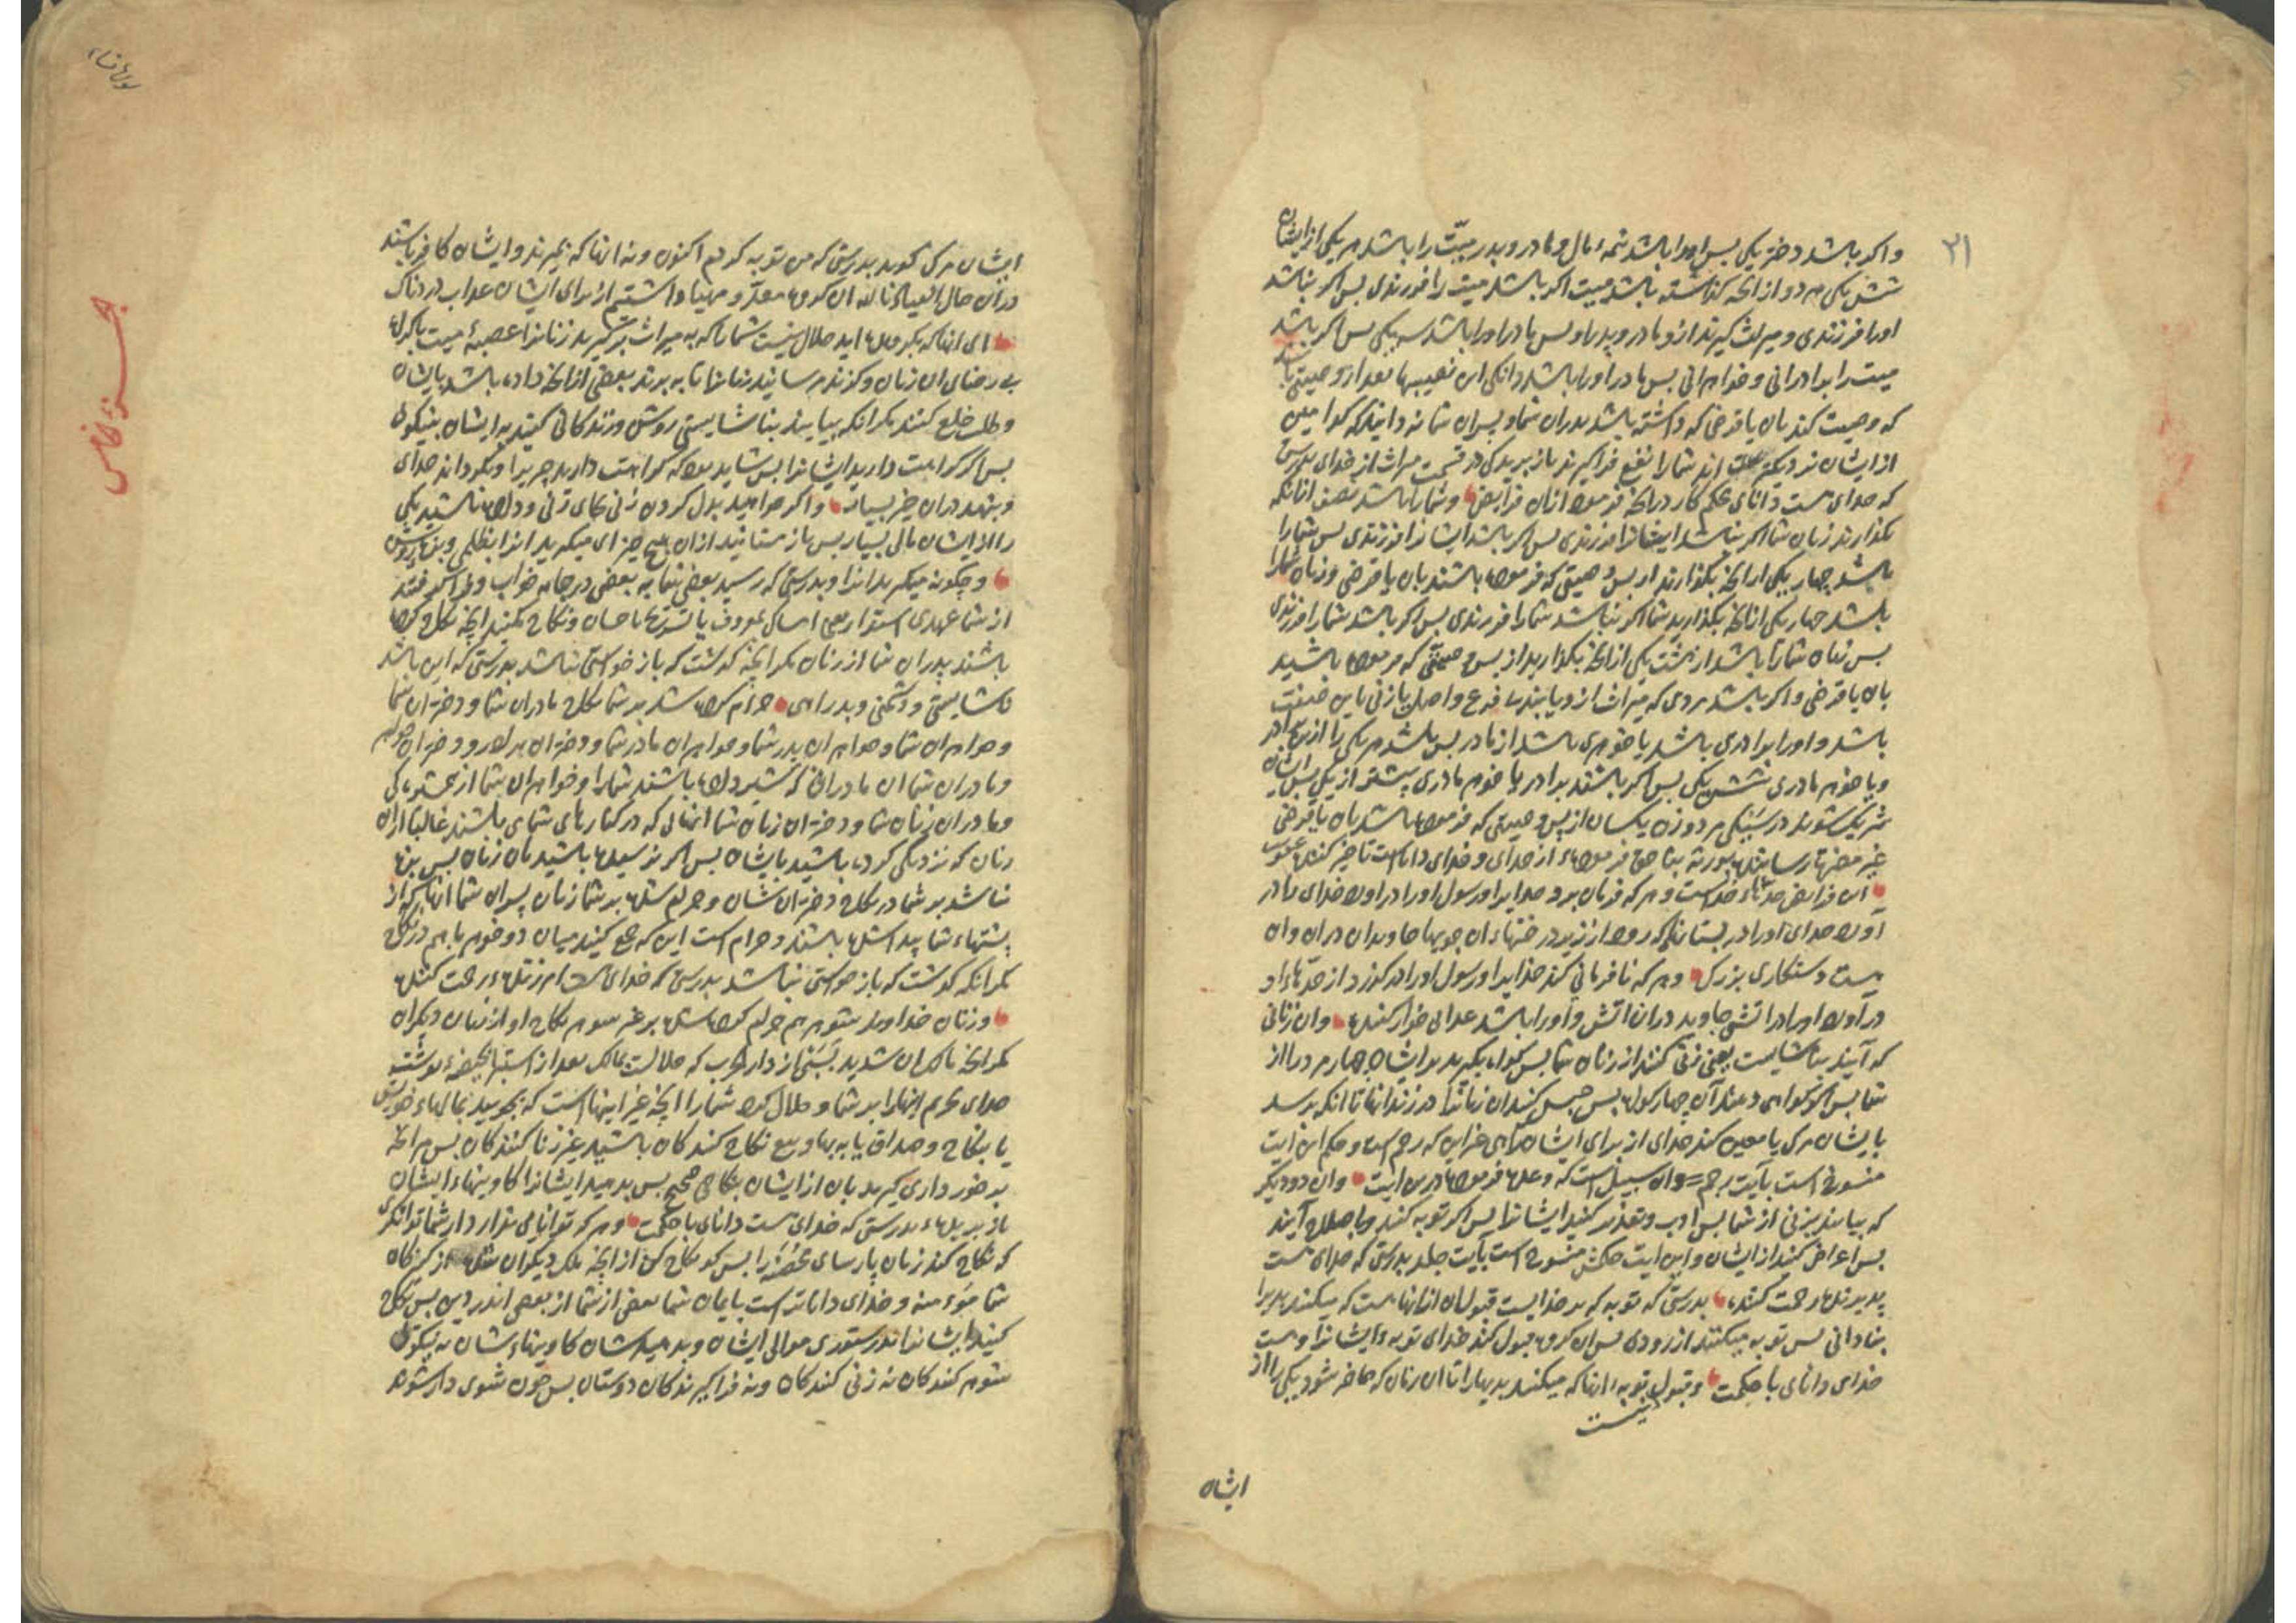 ۳۱
واکر باشد دختر یکی بس اورا باشد نیمهٔ مال و مادر و پدر میّت را باشد هر یکی از ایشان
شش یکی هر دو از انچه کذاشته باشد میت اکر باشد میت را فرزندی بس اکر نباشد
اورا فرزندی و میراث کیرند ازو مادر و پدر او بس مادر اورا باشد سه یکی بس اکر باشد
میت را برادرانی و خواهرانی بس مادر اورا باشد دانکی این نصیبها بعد از وصیتی باشد
که وصیت کند بان یا قرضی که داشته باشد پدران شما و پسران شما نه دانید که کدامین
از ایشان نزدیکتر اند شما را بنفع فراکیرند باز برید کی در قسمت میراث از خدای بدرستی
که خدای هست دانای محکم کار در انچه فرموده از ان فرایض و شما را باشد نصف انانکه
بکذارند زنان شما اکر نباشد ایشانرا فرزندی بس اکر باشد ایشانرا فرزندی بس شما را
باشد چهار یکی از انچه بکذارند از بس وصیتی که فرموده باشند بان یا قرضی و زنان شما را
باشد چهار یکی از انچه بکذارید شما اکر نباشد شما را فرزندی بس اکر باشد شما را فرزندی
بس زنان شما را باشد از هشت یکی از انچه بکذارید از بس وصیتی که فرموده باشید
بان یا قرضی و اکر باشد مردی که میراث ازو یابند بی فرع و اصل یا زنی باین صفت
باشد و اورا برادری باشد یا خوهری باشد از مادر بس باشد هر یکی را ازین برادر
و یا خوهر مادری شش یکی بس اکر باشند برادر یا خوهر مادری بیشتر از یکی بس ایشان
شریک شوند در سیکی مرد و زن یکسان از بس وصیتی که فرموده باشد بان یا قرضی
غیر مضرتها رسانیده بورثه بنا حق فرمودهٔ از خدای و خدای داناست تاخیر کننده عقوبت
این فرایض حدّهاء خداست و هر که فرمان برد خدایرا و رسول اورا در اورد خدای مر در
آورد خدای اورا در بستانیکه رود از زیر درختهاء ان جویها جاویدان دران و ان
هست رستکاری بزرک و هر که نافرمانی کند خدایرا و رسول اورا در کذرد از حدّهاء او
در آورد اورا در آتشی جاوید دران اتش و اورا باشد عذابی خوار کننده و ان زنانی
که آیند بناشایست یعنی زنی کنند از زنان شما بس کواه بکیرید بر ایشان چهار مرد را از
شما بس اکر کواهی دهند آن چهار کواه بس حبس کنید ان زنانرا در زندانها تا انکه برسد
بایشان مرک یا معین کند خدای از برای ایشان راهی غیر این که رجم است و حکم این ایت
منسوخ است بآیت رجم و ان سبیل است که وعده فرموده درین ایت و ان دو دیکر
که بیایند بزنی از شما بس ادب و تعذیر کنید ایشانرا بس اکر توبه کنند و باصلاح آیند
بس اعراض کنید از ایشان و این ایت حکمش منسوخ است بآیت جلد بدرستی که خدای هست
پذیرنده رحمت کننده بدرستی که توبه که بر خدایست قبول ان از انهاست که میکنند بدیرا
بنادانی بس توبه میکنند از زودی بس ان کروه قبول کند خدای توبهٔ ایشانرا و هست
خدای دانای با حکمت و قبول توبه انها که میکنند بدیها را تا ان زمان که حاضر شود یکی را از
نیست
ایشان
سورة نساء
جزء خامس
ایشان مرک کوید بدرستی که من توبه کردم اکنون و نه انها که بمیرند و ایشان کافر باشند
دران حال العیاذ بالله ان کروه معدّ و مهیا داشتیم از برای ایشان عذاب دردناک
ای انها که بکرویده اید حلال نیست شما را که به میراث برکیرید زنانرا عصبهٔ میت باکراه
بی رضای ان زنان و کزند مرسانید زنانرا تا به برند بعضی از انچه داده باشد بایشان
و طلب خلع کنند مکر انکه بیایند بناشایستی روشن و زندکانی کنید به ایشان بنیکوئی
بس اکر کراهت دارید ایشانرا بس شاید بود که کراهت دارید چیزیرا و بکرداند خدای
و بنهد دران خیر بسیار و اکر خواهید بدل کردن زنی بجای زنی و داده باشید یکی
را از ایشان مالی بسیار بس باز مستانید از ان هیچ چیز ای میکیرید انرا بظلمی و بزه روشن
و چکونه میکیرید انرا و بدرستی که رسید بعضی شما به بعضی در جامه خواب و فرا کرفتند
از شما عهدی استوار یعنی امساک بمعروف یا تسریح باحسان و نکاح مکنید انچه نکاح کرده
باشند پدران شما از زنان مکر انچه کذشت که باز خواستی نباشد بدرستی که این باشد
ناشایستی و دشمنی و بد راهی حرام کرده شد بر شما نکاح مادران شما و دختران شما
و خواهران شما و خواهران پدر شما و خواهران مادر شما و دختران برادر و دختران خواهر
و مادران شما ان مادرانی که شیر داده باشند شما را و خواهران شما از همشیرکی
و مادران زنان شما و دختران زنان شما انهائی که در کنارهای شما می باشند غالبا از ان
زنان که نزدیکی کرده باشید بایشان بس اکر نرسیده باشید بان زنان بس بزه
نباشد بر شما در نکاح دختران شان و حرام شده بر شما زنان پسران شما انها که از
پشتهاء شما پیدا شده باشند و حرام است این که جمع کنید میان دو خوهر با هم در نکاح
مکر انکه کذشت که باز خواستی نباشد بدرستی که خدای هست امرزندهٔ رحمت کننده
و زنان خداوند شوهر هم حرام کرده شده بر غیر شوهر نکاح او از زنان دیکران
مکر انچه مالک ان شدید بسَبْی از دار الحرب که حلالست بمالک بعد از استبرا بحیضهٔ نوشت
خدای تحریم اینها را بر شما و حلال کرد شما را انچه غیر اینهاست که بجوئید بمالهاء خویش
یا بنکاح و صداق یا به بها و بیع نکاح کنندکان باشید غیر زنا کنندکان بس هر انچه
برخورداری کیرید بان از ایشان بنکاحی صحیح بس بدهید ایشانرا کاوینهاء ایشان
باز بریدهٔ بدرستی که خدای هست دانای با حکمت و هر که توانایی ندارد از شما توانکری
که نکاح کند زنان پارسای محصَنه را بس کو نکاح کن از انچه ملک دیکران شده از کنیزکان
شما مؤمنه و خدای داناتر است بایمان شما بعضی از شما از بعضی اندر دین بس نکاح
کنید ایشانرا بدستوری موالی ایشان و بدهید شان کاوینهاء شان به نیکوئی
شوهر کنندکان نه زنی کنندکان و نه فراکیرندکان دوستان بس چون شوی دار شوند